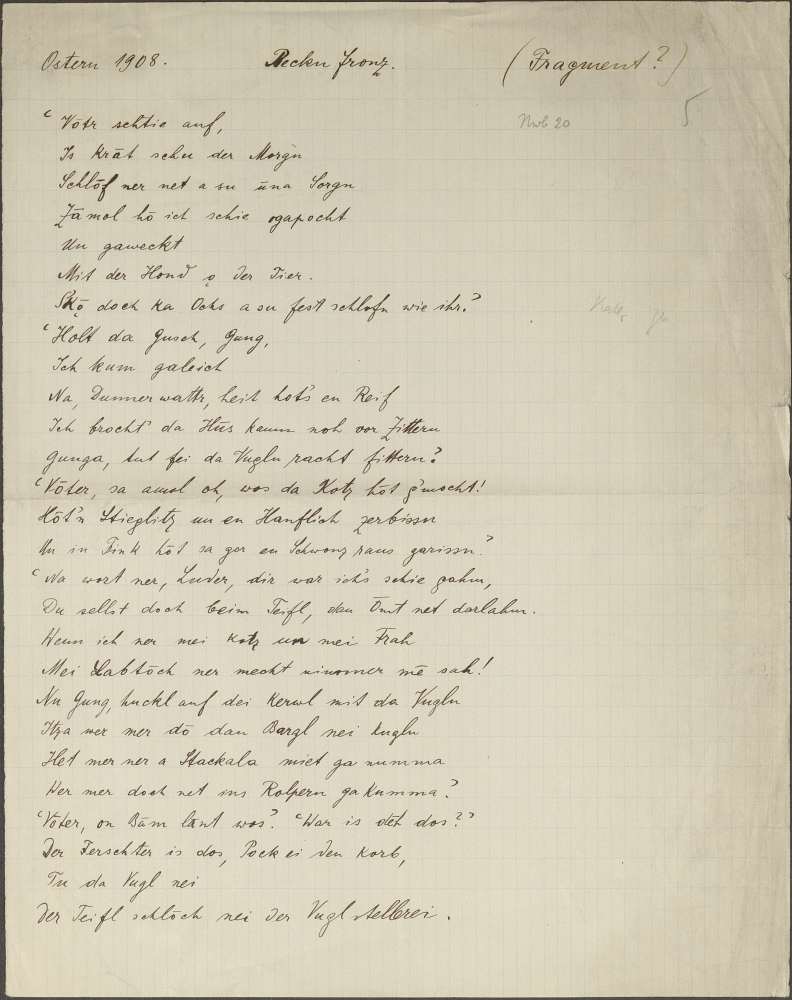 Ostern 1908. Beckn Fronz. (Fragment?)
5
Nwb 20
"Vōtr schtie auf,
Is krāt schu der Morgn
Schlōf ner net a su ūna Sorgn
Zāmol hō ich schie ogapocht
Un gaweckt
Mit der Hond o der Tier.
Skō doch ka Ochs a su fest schlofn wie ihr."
"Holt da Gusch, Gung,
Ich kum galeich
Na, Dunnerwattr, heit hot's en Reif
Ich brocht' da Hūs kaum noh vor Zittern
Gunga, tut fei da Vugln racht fittern"
"Vōter, sa amol oh, wos da Kotz hōt g'mocht!
Hōt'n Stieglitz un en Hanflich zerbissn
Un in Fink hōt sa gor en Schwonz raus garissn."
"Na wort ner, Luder, dir war ich's schie gahm,
Du sellst doch beim Teifl, dan Ōmt net darlahm.
Wenn ich ner mei Kotz un mei Frah
Mei Labtōch ner mecht nimmer mē sah!
Nu Gung, huckl auf dei Kerwl mit da Vugln
Itza wer mer dō dan Bargl nei kugln
Het mer ner a Stackala miet ga numma
Wer mer doch net ins Rolpern ga kumma"
"Vōter, on Bām lānt wos". "War is det dos?"
Der Ferschter is dos, Pock ei den Korb,
Tu da Vugl nei
Der Teifl schlōch nei der Vuglstellerei.